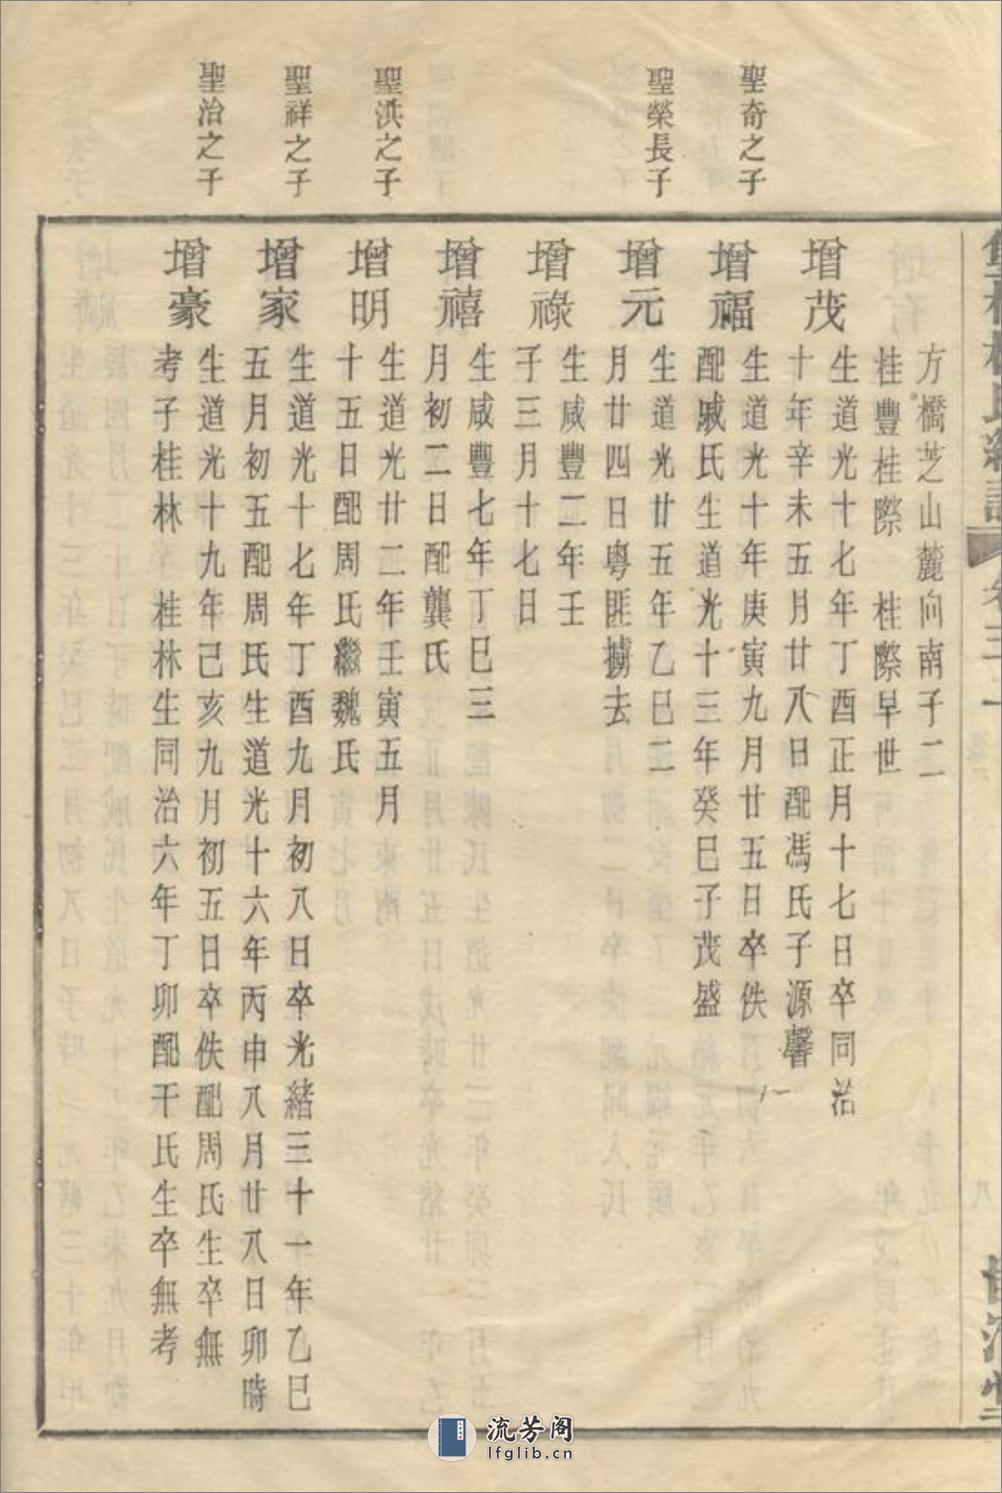 方橋芝山麓向南子二
桂豐桂際　桂際早世
聖奇之子
增茂
生道光十七年丁酉正月十七日卒同治
十年辛未五月廿八日配馮氏子源馨
增福
生道光十年庚寅九月廿五日卒佚
配戚氏生道光十三年癸巳子茂盛
聖榮長子
增元
生道光廿五年乙巳二
月廿四日粵匪擄去
增祿
生咸豐二年壬
子三月十七日
增禧
生咸豐七年丁巳三
月初二日配龔氏
聖浜之子
增明
生道光廿二年壬寅五月
十五日配周氏繼魏氏
聖祥之子
增家
生道光十七年丁酉九月初八日卒光緒三十一年乙巳
五月初五配周氏生道光十六年丙申八月廿八日卯時
聖治之子
增豪
生道光十九年己亥九月初五日卒佚配周氏生卒無
考子桂林　桂林生同治六年丁卯配干氏生卒無考
流芳阁
lfglib.cn